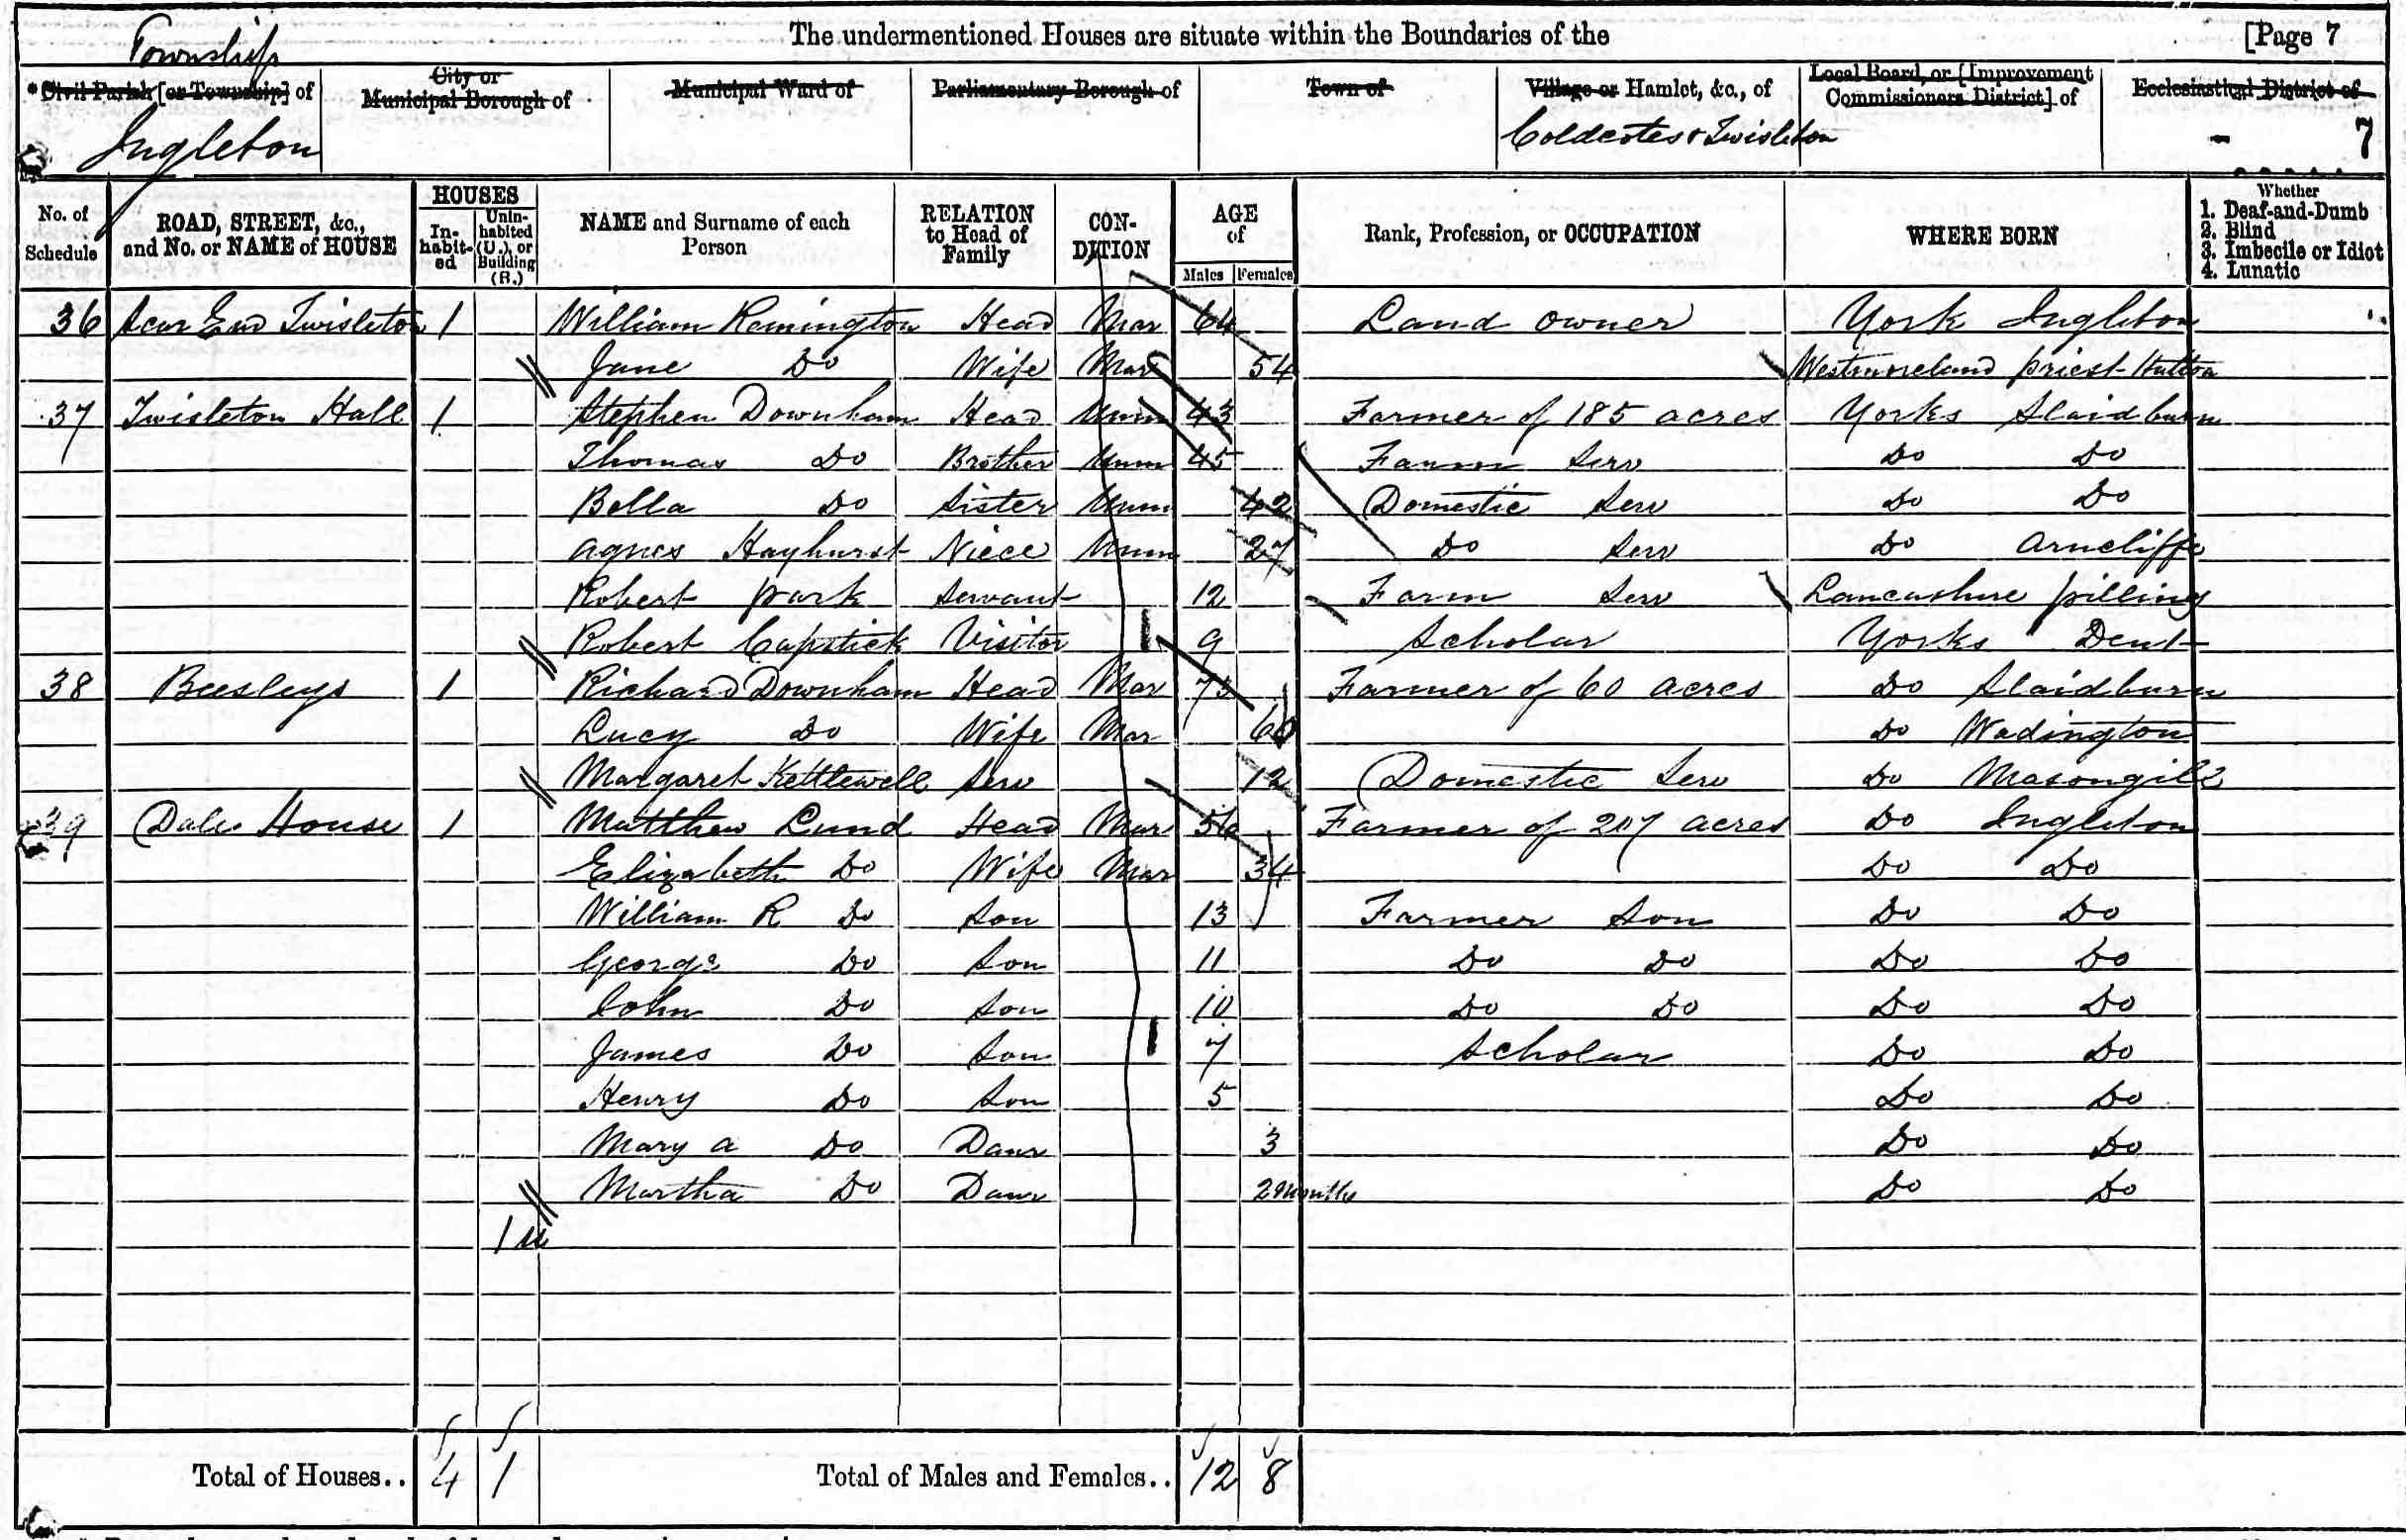 The undermentioned Houses are situate within the Boundaries of the [Page 7
Township
*Civil Parish [or Township] of
City or Municipal Borough of
Municipal Ward of
Parliamentary Borough of
Town of
Village or Hamlet, &c., of
Local Board, or [Improvement Commissioners District] of
Ecclesiastical District of
Ingleton Coldcotes & Twisleton - 7
No. of Schedule
ROAD, STREET, &c., and No. or NAME of HOUSE
HOUSES
In-habit-ed
Unin-habited (U.), or Building (B.)
NAME and Surname of each Person
RELATION to Head of Family
CON-DITION
AGE of
Males Females
Rank, Profession, or OCCUPATION
WHERE BORN
Whether
1. Deaf-and-Dumb
2. Blind
3. Imbecile or Idiot
4. Lunatic
36 Scar End Twisleton 1 William Remington Head Mar 64 Land owner York Ingleton
Jane Do Wife Mar 54 Westmoreland priest Hutton
37 Twisleton Hall 1 Stephen Downham Head Unm 43 Farmer of 185 acres Yorks Slaidburn
Thomas Do Brother Unm 45 Farm Serv Do Do
Bella Do Sister Unm 42 Domestic Serv Do Do
agnes Hayhurst Niece Unm 27 Do Serv Do Arncliffe
Robert park Servant 12 Farm Serv Lancashire pilling
Robert Capstick Visitor 9 Scholar Yorks Dent
38 Beesleys 1 Richard Downham Head Mar 73 Farmer of 60 acres Do Slaidburn
Lucy Do Wife Mar Do Wadington
Margaret Kettlewell Serv 12 Domestic Serv Do Masongill
39 Dale House 1 Matthew Lund Head Mar Farmer of acres Do Ingleton
Elizabeth Do Wife Mar 34 Do Do
William R Do Son 13 Farmer Son Do Do
George Do Son 11 Do Do Do Do
John Do Son 10 Do Do Do Do
James Do Son 7 Scholar Do Do
Henry Do Son 5 Do Do
Mary a Do Daur 3 Do Do
Martha Do Daur 2 Months Do Do
1 u
Total of Houses.. 4 1 Total of Males and Females.. 12 8